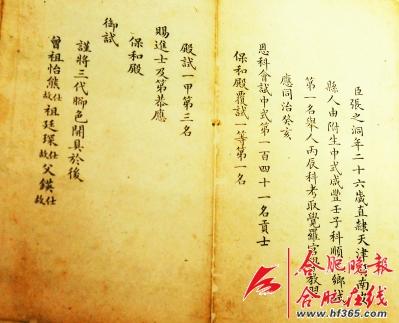 臣張之洞年二十六歲直隸天津南
縣人由附生中式咸豐壬子科順鄉試
第一名舉人丙辰科考取覺羅官學教習
應同治癸亥
恩科會試中式第一百四十一名貢士
保和殿覆試一等第一名
殿試一甲第三名
賜進士及第恭應
保和殿
御試
謹將三代腳色開具於後
曾祖怡熊仕故祖廷琛仕故父鍈仕故
合肥晚报
合肥在线
www.hf365.com